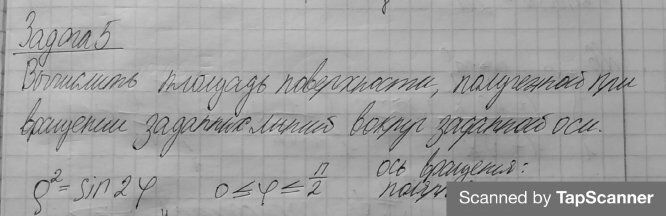 Задача 5
Вычислить площадь поверхности, полученной при
вращении заданных линий вокруг заданной оси.
ρ² = sin 2φ 0 ≤ φ ≤ π/2 ось вращения:
Scanned by TapScanner